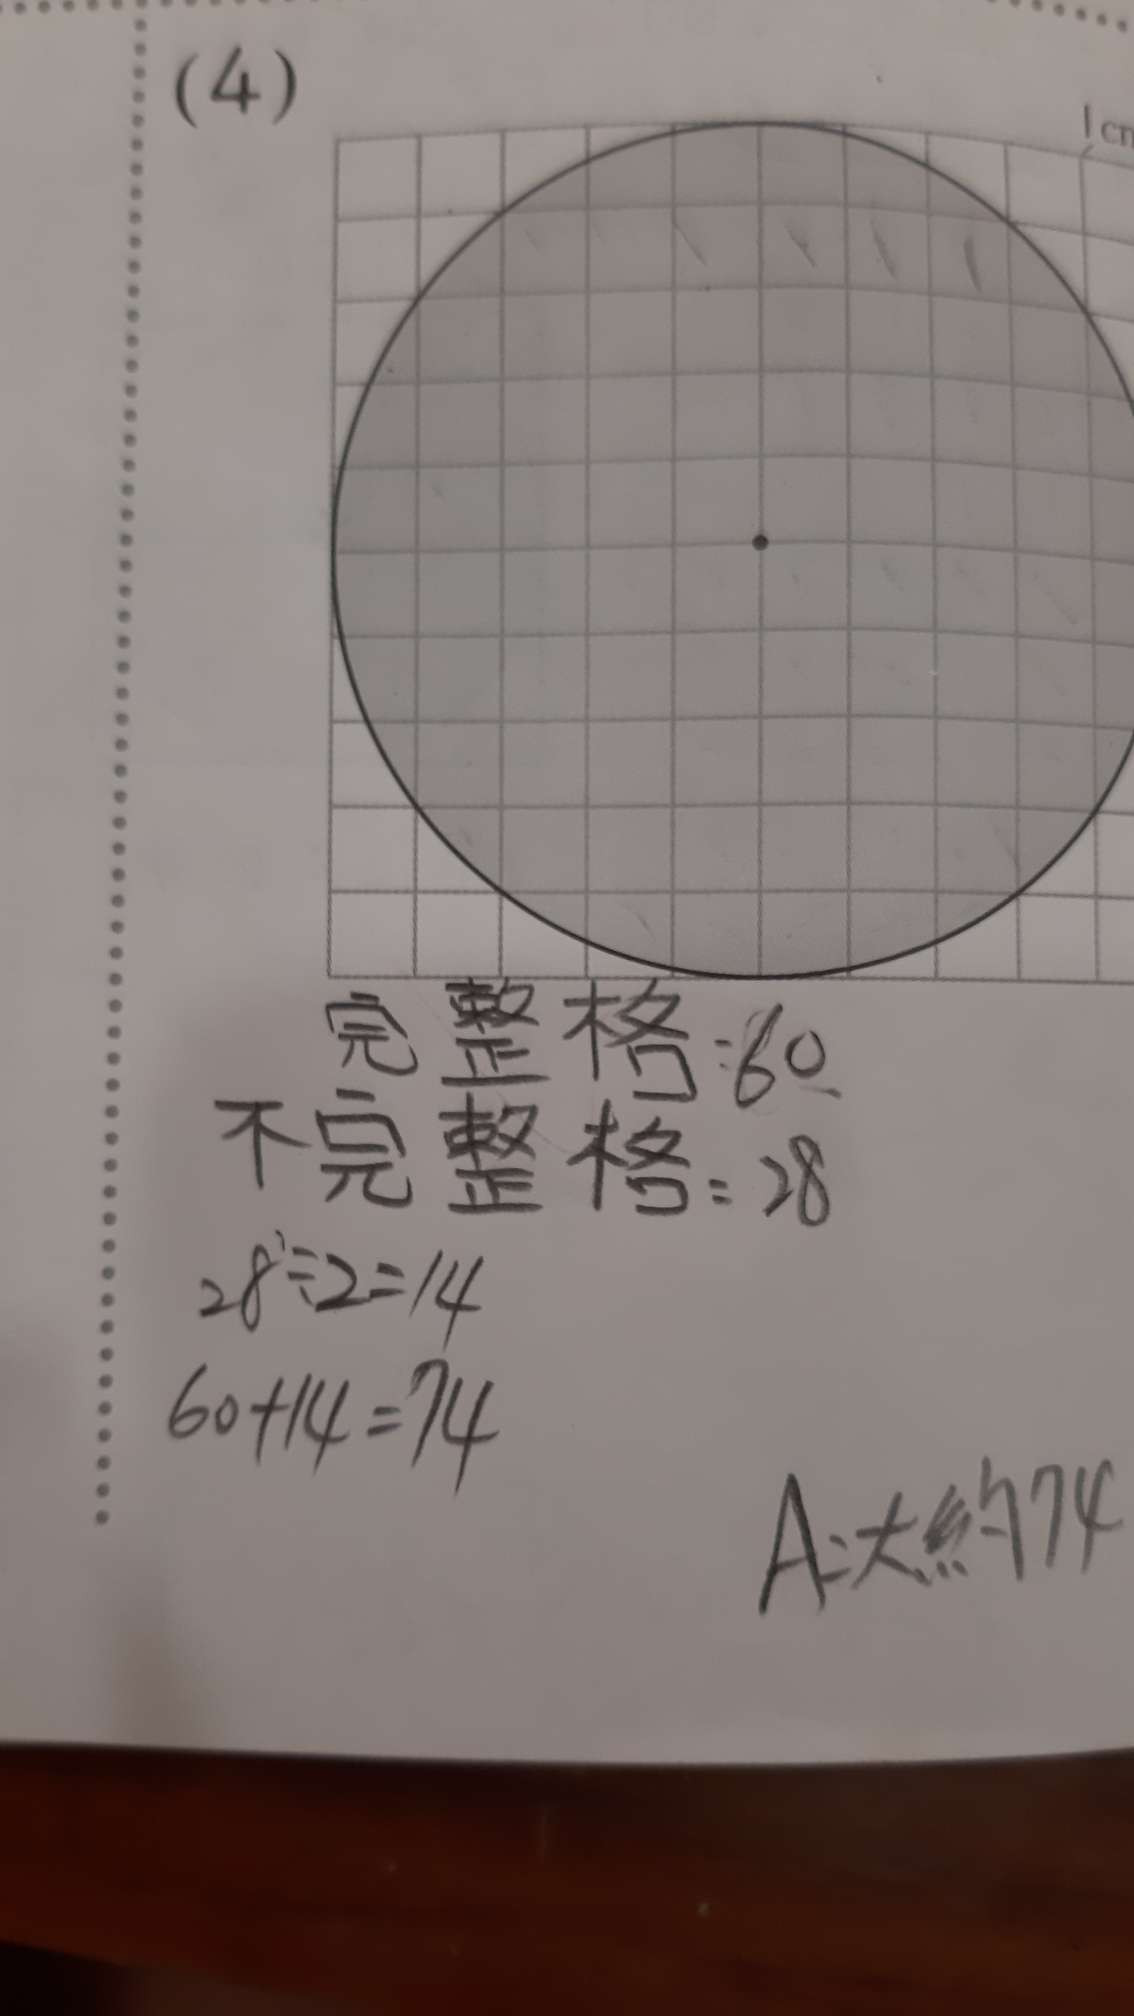 (4)
1cm
完整格=60
不完整格=28
28÷2=14
60+14=74
A:大約74